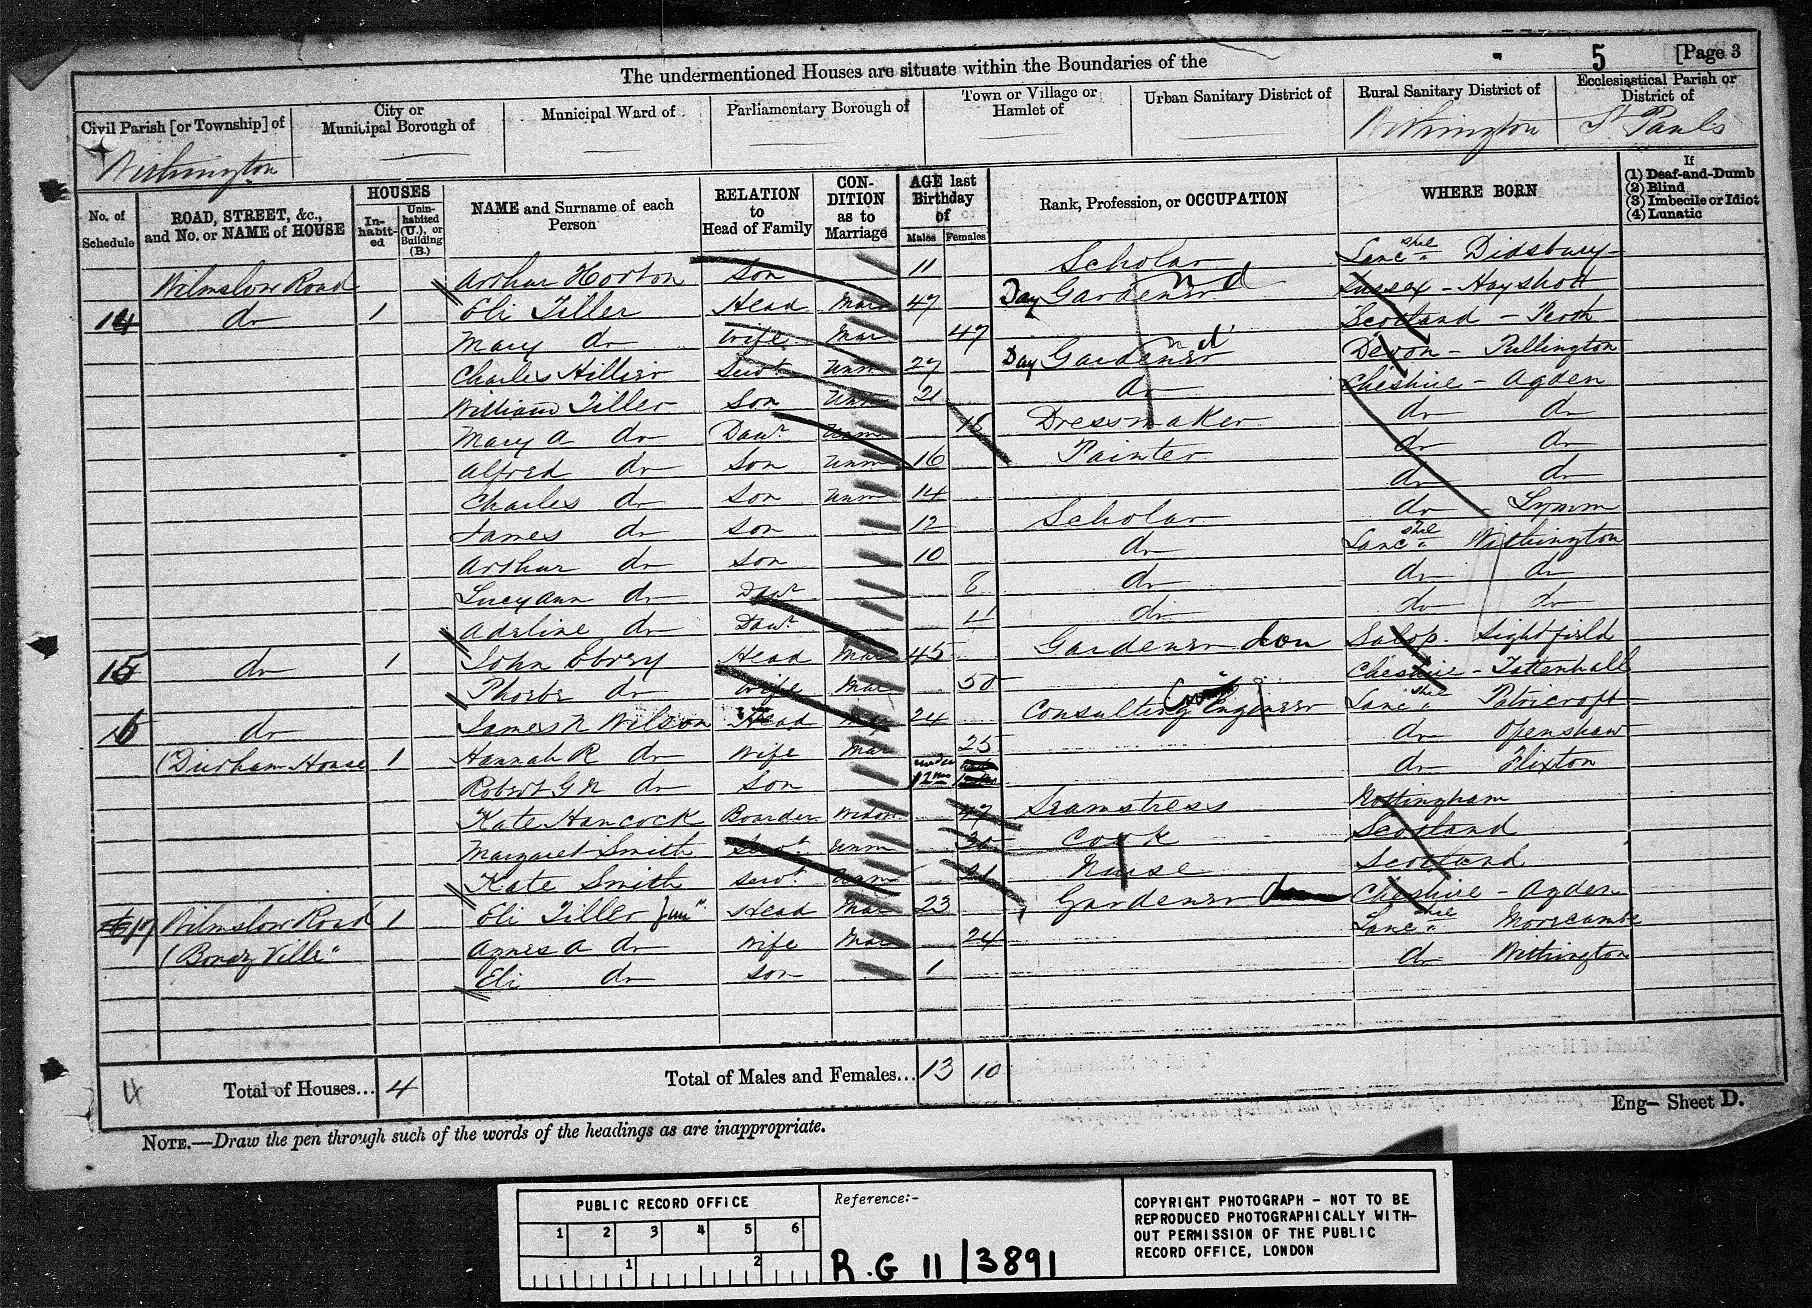 5 [Page 3
The undermentioned Houses are situate within the Boundaries of the
Civil Parish [or Township] of | City or Municipal Borough of | Municipal Ward of | Parliamentary Borough of | Town or Village or Hamlet of | Urban Sanitary District of | Rural Sanitary District of | Ecclesiastical Parish or District of
Withington | Withington | St Pauls
No. of Schedule | ROAD, STREET, &c., and No. or NAME of HOUSE | HOUSES In-habit-ed | Unin-habited (U.), or Building (B.) | NAME and Surname of each Person | RELATION to Head of Family | CON-DITION as to Marriage | AGE last Birthday of Males | Females | Rank, Profession, or OCCUPATION | WHERE BORN | If (1) Deaf-and-Dumb (2) Blind (3) Imbecile or Idiot (4) Lunatic
Wilmslow Road | Arthur Horton | Son | 11 | Scholar | Lancshire Didsbury
14 | do | 1 | Eli Tiller | Head | Mar | 47 | Day Gardener nd | Sussex - Hayshott
Mary do | Wife | Mar | 47 | Scotland - Perth
Charles Hillier | Servt | Unm | 27 | Day Gardener nd | Devon - Pultington
William Tiller | Son | Unm | 21 | do | Cheshire - Agden
Mary A do | Daur | Unm | 18 | Dressmaker | do do
Alfred do | Son | Unm | 16 | Painter | do do
Charles do | Son | Unm | 14 | do do
James do | Son | 12 | Scholar | do Lymm
Arthur do | Son | 10 | do | Lancshire Withington
Lucy Ann do | Daur | 8 | do | do do
Adeline do | Daur | 4 | do | do do
15 | do | 1 | John Ebrey | Head | Mar | 45 | Gardener dom | Salop. Lightfield
Phoebe do | Wife | Mar | 50 | Cheshire - Tattenhall
16 | do | James N Wilson | Head | Mar | 24 | Consulting Engineer | Lancshire Patricroft
(Durham House | 1 | Hannah R do | Wife | Mar | 25 | do Openshaw
Robert G N do | Son | under 12 mo | do Flixton
Kate Hancock | Boarder | Widow | 47 | Seamstress | Nottingham
Margaret Smith | Servt | Unm | 30 | Cook | Scotland
Kate Smith | Servt | Unm | 21 | Nurse | Scotland
17 | Wilmslow Road | 1 | Eli Tiller Junr | Head | Mar | 23 | Gardener dom | Cheshire - Agden
(Villa" | Agnes A do | Wife | Mar | 24 | Lancshire Morecambe
Eli do | Son | 1 | do Withington
4 | Total of Houses... 4 | Total of Males and Females... 13 | 10
Eng— Sheet D.
NOTE.—Draw the pen through such of the words of the headings as are inappropriate.
PUBLIC RECORD OFFICE
1 2 3 4 5 6
1 2
Reference:-
R.G 11/3891
COPYRIGHT PHOTOGRAPH - NOT TO BE
REPRODUCED PHOTOGRAPHICALLY WITH-
OUT PERMISSION OF THE PUBLIC
RECORD OFFICE, LONDON